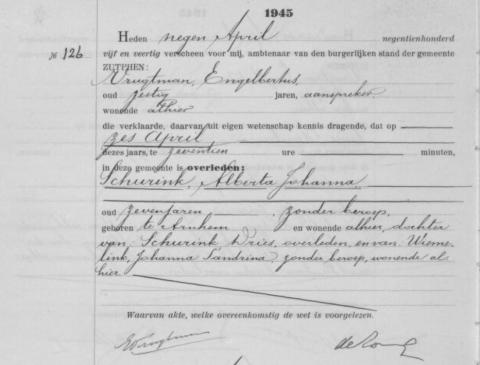 1945
Heden negen April negentienhonderd
№ 126 vijf en veertig verscheen voor mij, ambtenaar van den burgerlijken stand der gemeente
ZUTPHEN:
Vrugtman, Engelbertus,
oud zestig jaren, aanspreker
wonende alhier
die verklaarde, daarvan uit eigen wetenschap kennis dragende, dat op
zes April
dezes jaars, te zeventien ure minuten,
in deze gemeente is overleden:
Schurink, Alberta Johanna,
oud zeven jaren, zonder beroep,
geboren te Arnhem en wonende alhier, dochter
van Schurink, Dries, overleden, en van Wieme-
link, Johanna Sandrina, zonder beroep, wonende al
hier
Waarvan akte, welke overeenkomstig de wet is voorgelezen.
EVrugtman